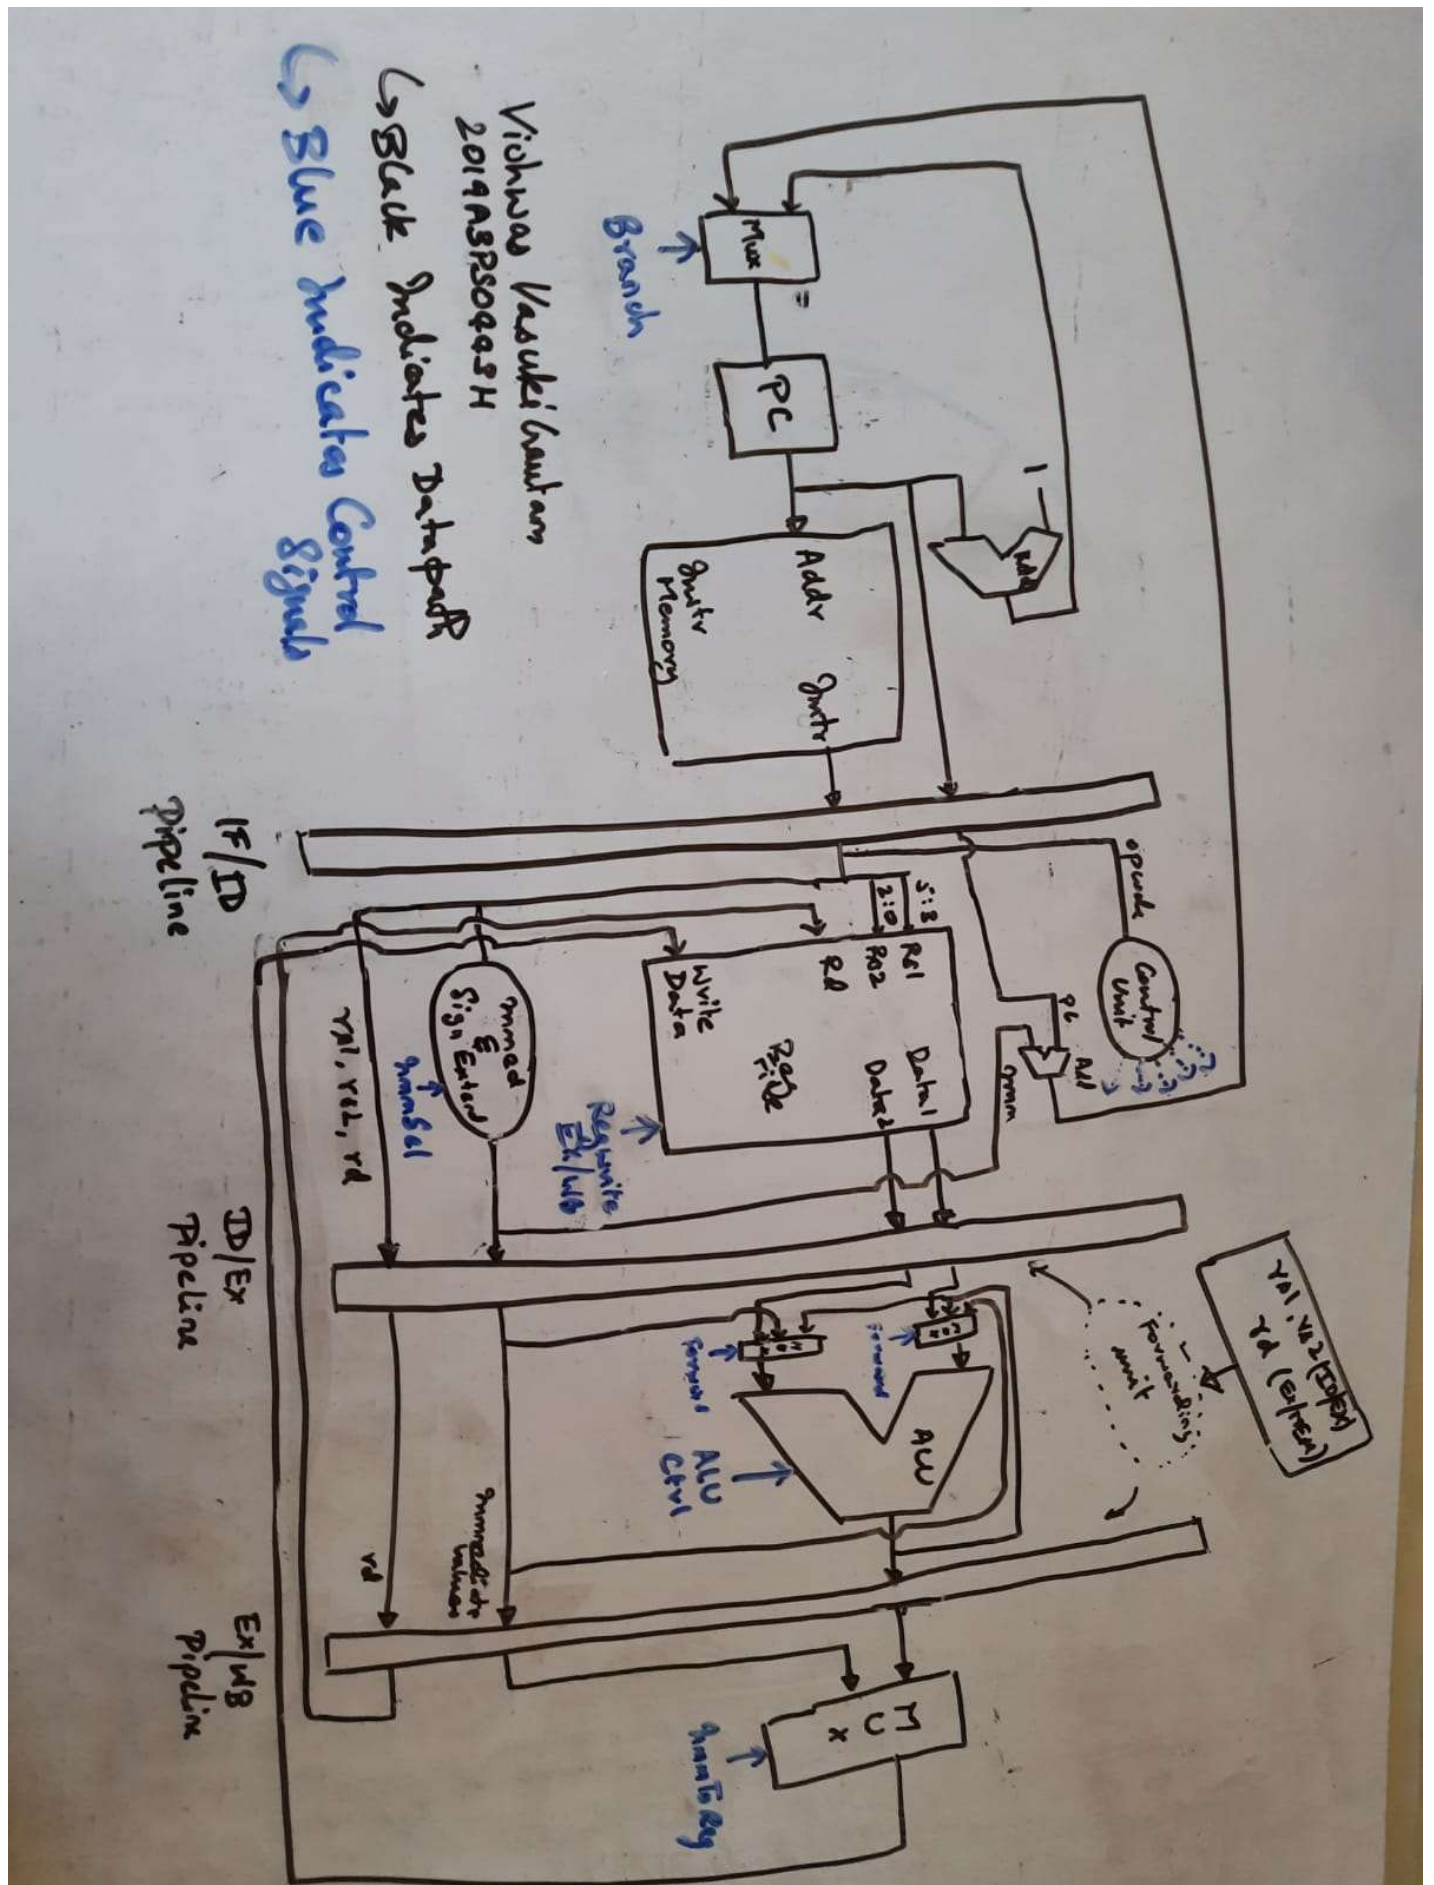 Vishwas Vasuki Gautam
2019A3PS0443H
↳ Black Indicates Datapath
↳ Blue Indicates Control
Signals
Mux
Branch
PC
1
Add
Addr
Instr
Instr
Memory
IF/ID
Pipeline
opcode
Control
Unit
PC
Add
imm
5:3
2:0
RS1
RS2
Rd
Write
Data
Reg
File
Data1
Data2
RegWrite
Ex/WB
Immed
&
Sign Extend
ImmSel
rs1, rs2, rd
ID/Ex
Pipeline
rs1, rs2 (ID/EX)
rd (Ex/MEM)
Forwarding
unit
Forward
Forward
ALU
ALU
Ctrl
Immediate
values
rd
Ex/WB
Pipeline
MUX
ImmToReg